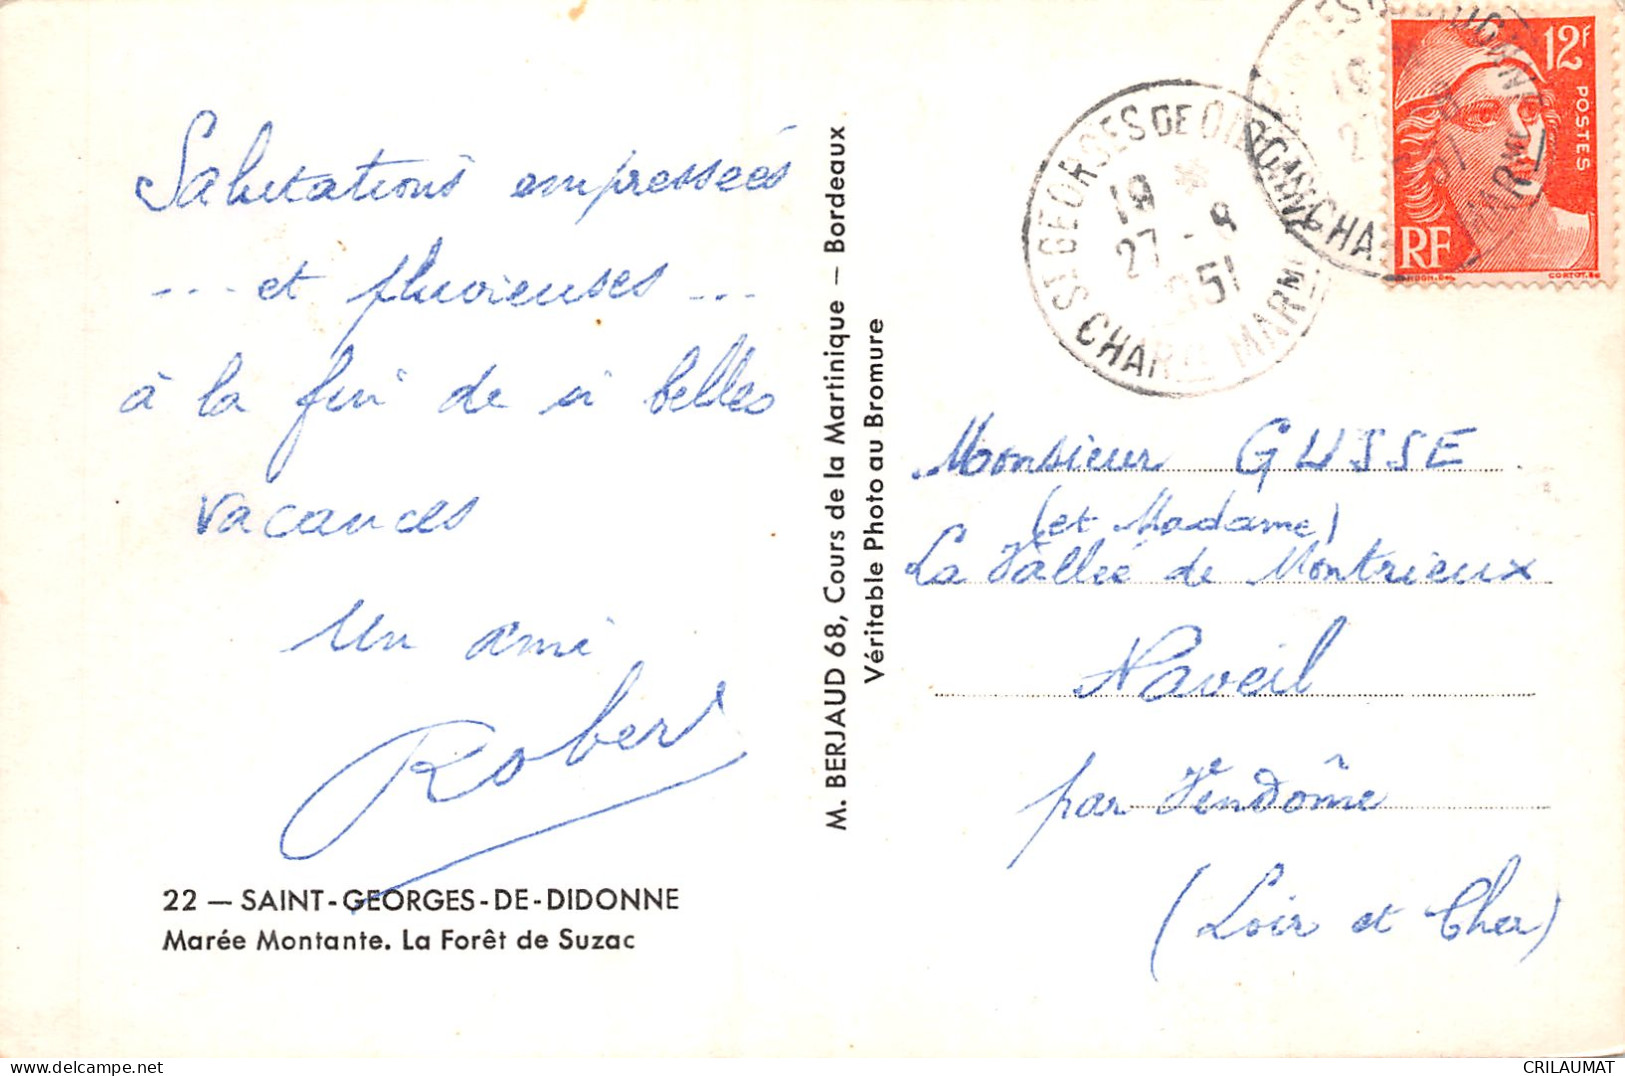 Salutations empressées
... et pluvieuses ...
à la fin de si belles
vacances
Un ami
Robert
22 — SAINT-GEORGES-DE-DIDONNE
Marée Montante. La Forêt de Suzac
M. BERJAUD 68, Cours de la Martinique — Bordeaux
Véritable Photo au Bromure
ST GEORGES DE DIDONNE
19 *
27 - 8
1951
CHARTE MARME
12F
POSTES
RF
CORTOT.
Monsieur GUSSE
(et Madame)
La Vallée de Montrieux
Naveil
par Vendôme
(Loir et Cher)
CRILAUMAT